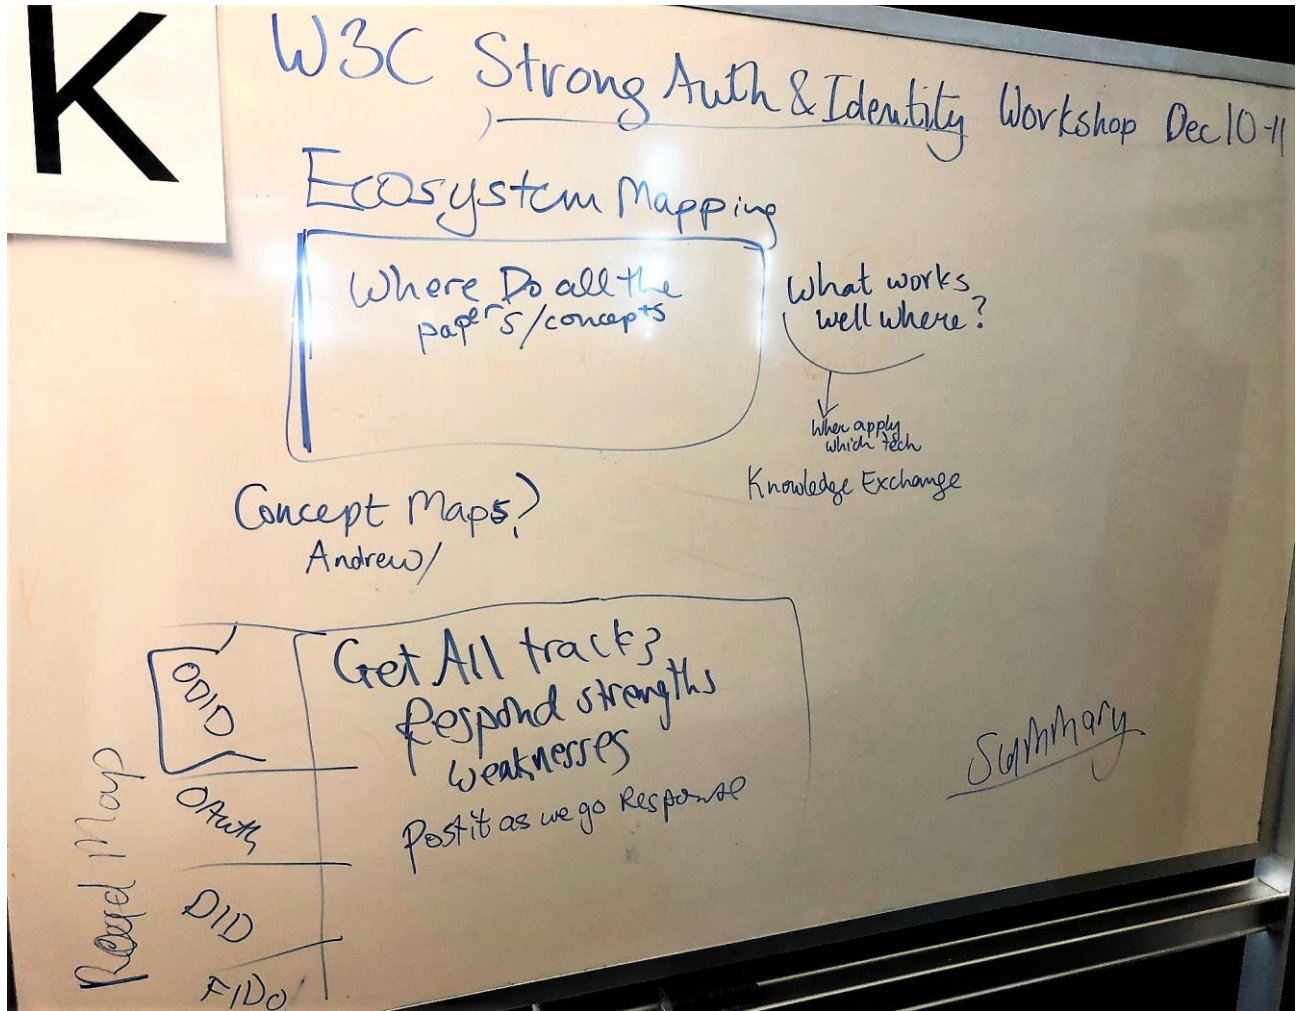 K
W3C Strong Auth & Identity Workshop Dec 10-11
Ecosystem Mapping
Where Do all the
papers/concepts
What works
well where?
When apply
which tech
Knowledge Exchange
Concept Maps?
Andrew/
Get All tracks
Respond strengths
weaknesses
Postit as we go Response
Road Map
ODID
OAuth
DID
FIDO
Summary